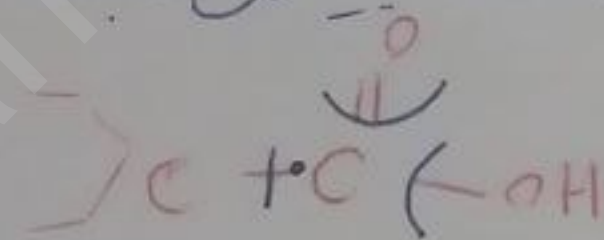 O
C + •C - OH